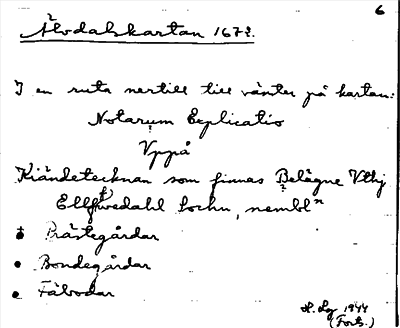 6
Älvdalskartan 1672.
I en ruta nertill till vänster på kartan:
Notarum Explicatio
Vppå
Kiändetecknan som finnas Belägne Vthj
Ellfwedahl Sochn, nembln
Prästegårdar
• Bondegårdar
• Fäbodar
H. Lg 1944
(Forts.)